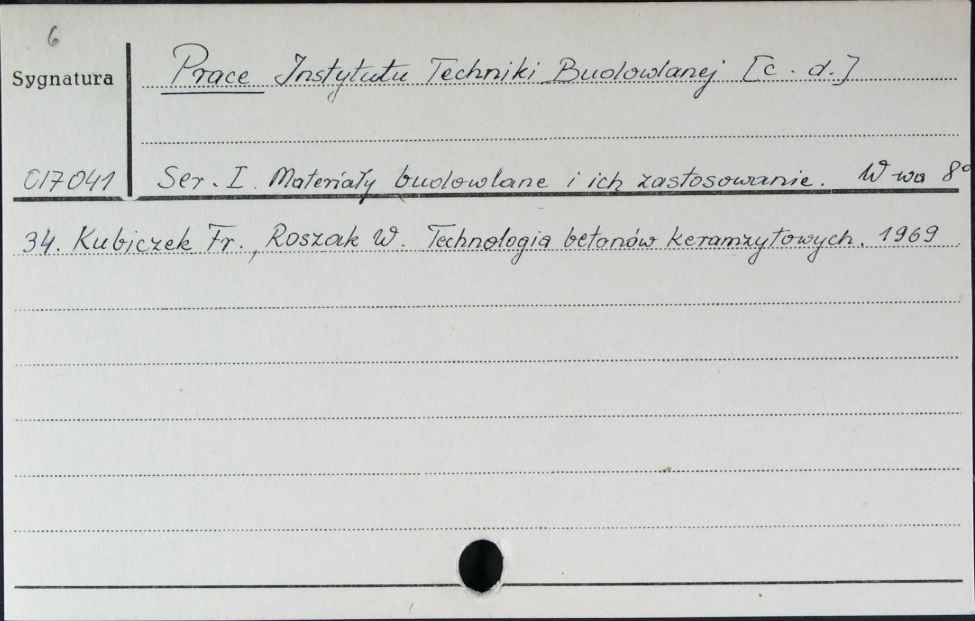 6
Sygnatura
Prace Instytutu Techniki Budowlanej [c. d.]
C17041
Ser. I. Materiały budowlane i ich zastosowanie. W-wa 8°
34. Kubiczek Fr., Roszak W. Technologia betonów keramzytowych. 1969